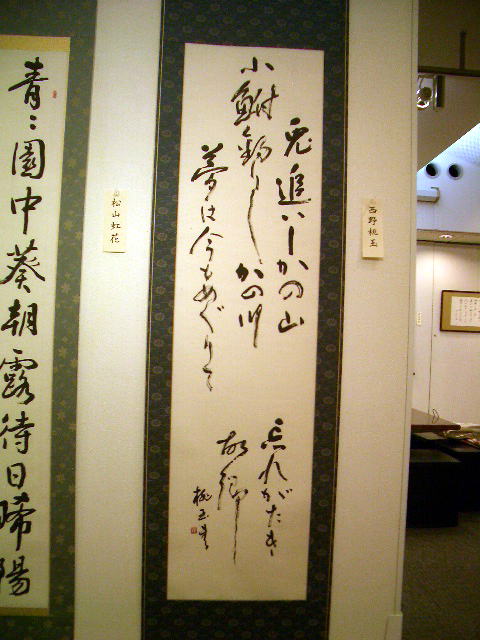 兎追いしかの山
小鮒釣りしかの川
夢は今もめぐりて
忘れがたき
故郷
桃玉書
西野桃玉
松山虹花
青々園中葵朝露待日晞陽